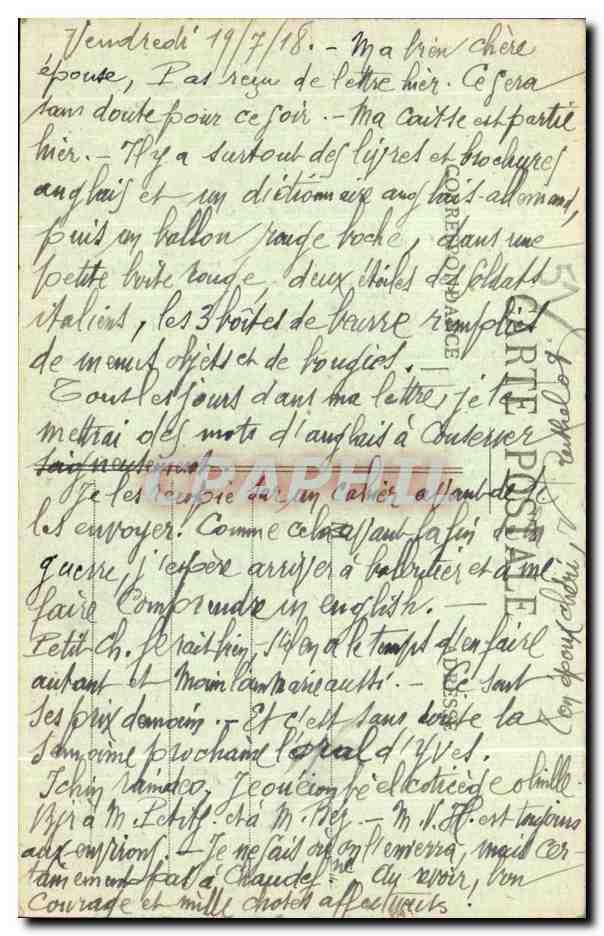 Vendredi 19/7/18. - Ma bien chère
épouse, Pas reçu de lettre hier. Ce sera
sans doute pour ce soir. - Ma caisse est partie
hier. - Il y a surtout des livres et brochures
anglais et un dictionnaire anglais-allemand,
puis un ballon rouge boche, dans une
petite boîte rouge, deux étoiles de soldats
italiens, les 3 boîtes de beurre remplies
de menus objets et de bougies. -
Tous les jours dans ma lettre, je te
mettrai des mots d'anglais à conserver
soigneusement
Je les recopie sur un cahier avant de te
les envoyer. Comme cela avant la fin de la
guerre, j'espère arriver à et à me
faire comprendre in english. -
Petit Ch. ferait bien, s'il en a le temps d'en faire
autant et aussi. - Ce sont
ses prix demain. - Et c'est sans doute la
semaine prochaine l'oral d'Yves.
à M. Petit et à M. - M. V. H. est toujours
aux environs. - Je ne sais où on l'enverra, mais cer-
tainement pas à Au revoir, bon
courage et mille choses affectueuses.
Ton époux chéri,
CARTE POSTALE
CORRESPONDANCE
ADRESSE
CRAPETTI